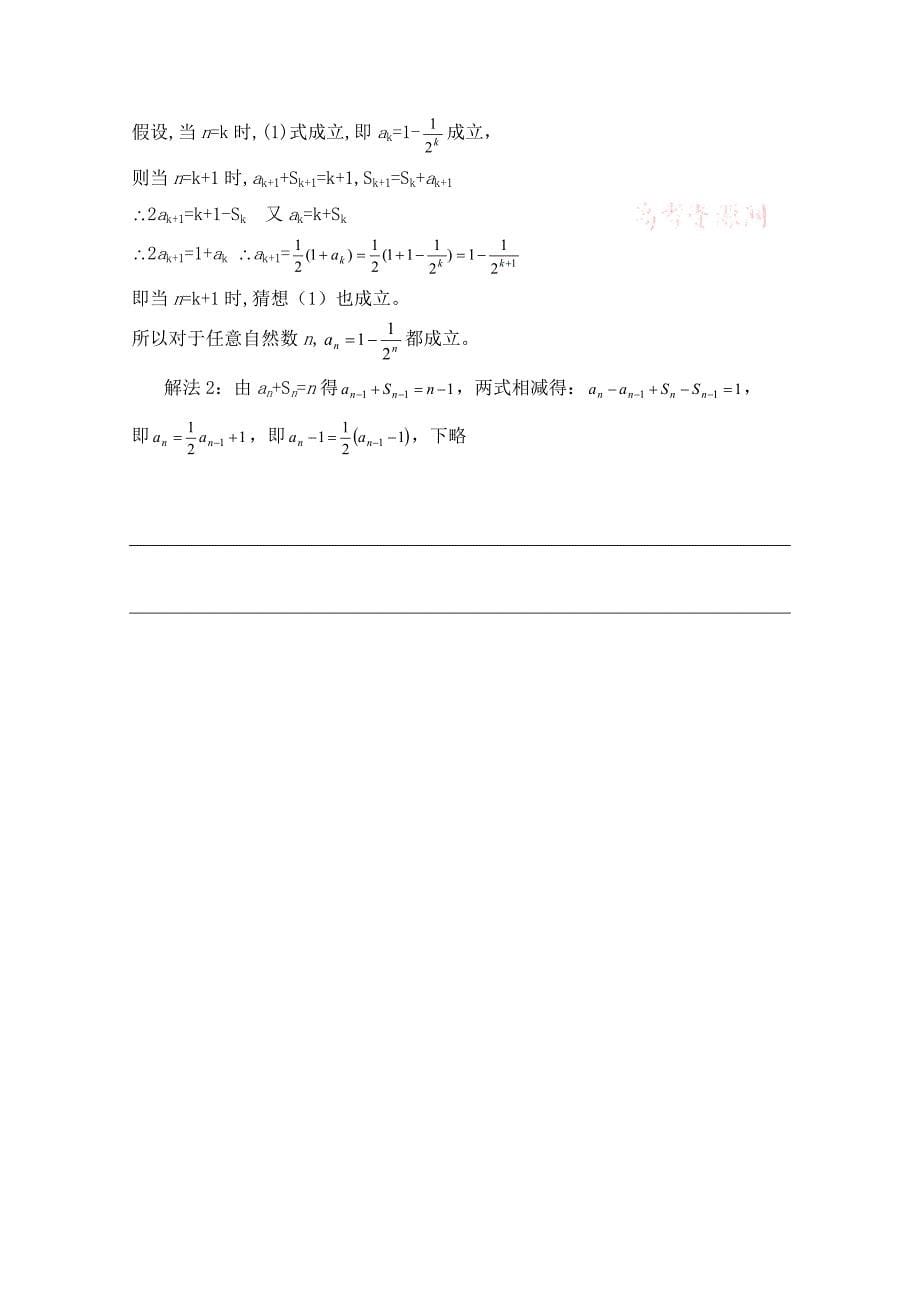 假设,当n=k时,(1)式成立,即aₖ=1-\frac{1}{2^k}成立,
则当n=k+1时,aₖ₊₁+Sₖ₊₁=k+1,Sₖ₊₁=Sₖ+aₖ₊₁
∴2aₖ₊₁=k+1-Sₖ 又aₖ=k+Sₖ
高考资源网
∴2aₖ₊₁=1+aₖ ∴aₖ₊₁=\frac{1}{2}(1+a_k)=\frac{1}{2}(1+1-\frac{1}{2^k})=1-\frac{1}{2^{k+1}}
即当n=k+1时,猜想（1）也成立。
所以对于任意自然数n,a_n=1-\frac{1}{2^n}都成立。
解法2：由aₙ+Sₙ=n得a_{n-1}+S_{n-1}=n-1，两式相减得：a_n-a_{n-1}+S_n-S_{n-1}=1，
即a_n=\frac{1}{2}a_{n-1}+1，即a_n-1=\frac{1}{2}(a_{n-1}-1)，下略